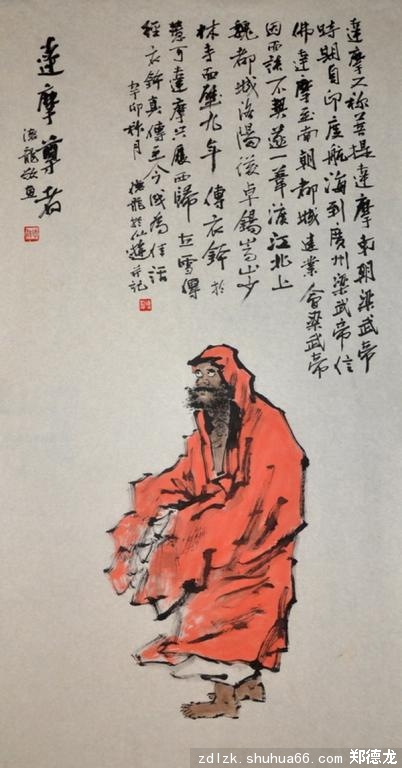 達摩又称菩提達摩南朝梁武帝
時期自印度航海到廣州梁武帝信
佛達摩至南朝都城建業會梁武帝
因面談不契遂一葦渡江北上
魏都城洛陽後卓錫嵩山少
林寺面壁九年傳衣鉢於
慧可達摩只履西歸立雪傳
經衣鉢真傳至今成為佳話
辛卯 月德龍於仙 并記
達摩尊者
德龍敬画
zdlzk.shuhua66.com 郑德龙